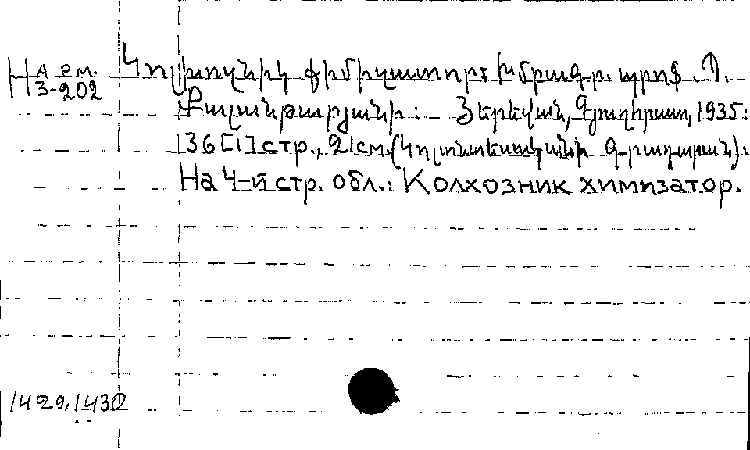 Н А эм. Կոլխոզնիկ քիմիզատոր: Խմբագր. պրոֆ. Պ.
3-202 Քալանթարյանի: Յերեվան, Գյուղհրատ, 1935:
36 [1] стр., 21 см. (Կոլտնտեսականի գրադարան):
На 4-й стр. обл.: Колхозник химизатор.
1429.1430